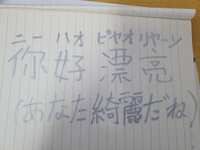 ニー ハオ ピヤオ リヤーン
你好 漂亮
(あなた綺麗だね)